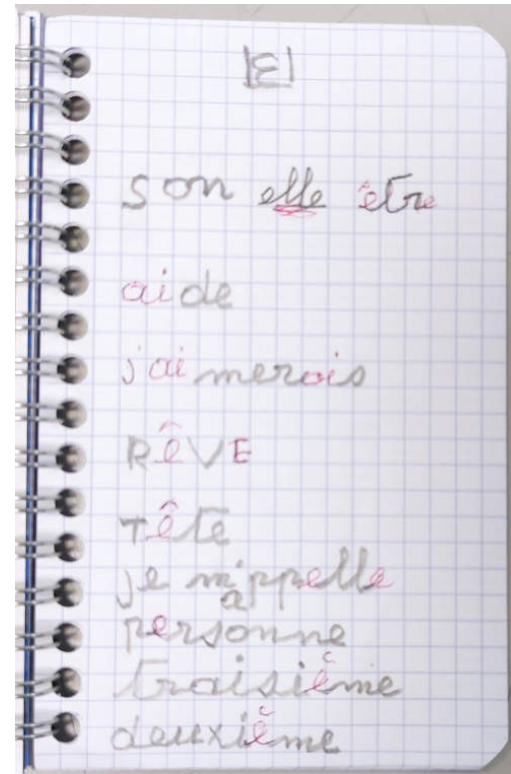 |E|
son elle être
aide
j'aimerais
RÊVE
TÊTE
je m'appelle
personne
traisième
deuxième